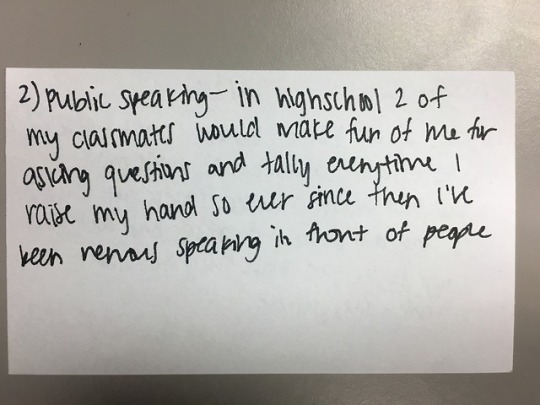 2) public speaking - in highschool 2 of
my classmates would make fun of me for
asking questions and tally everytime I
raise my hand so ever since then I've
been nervous speaking in front of people